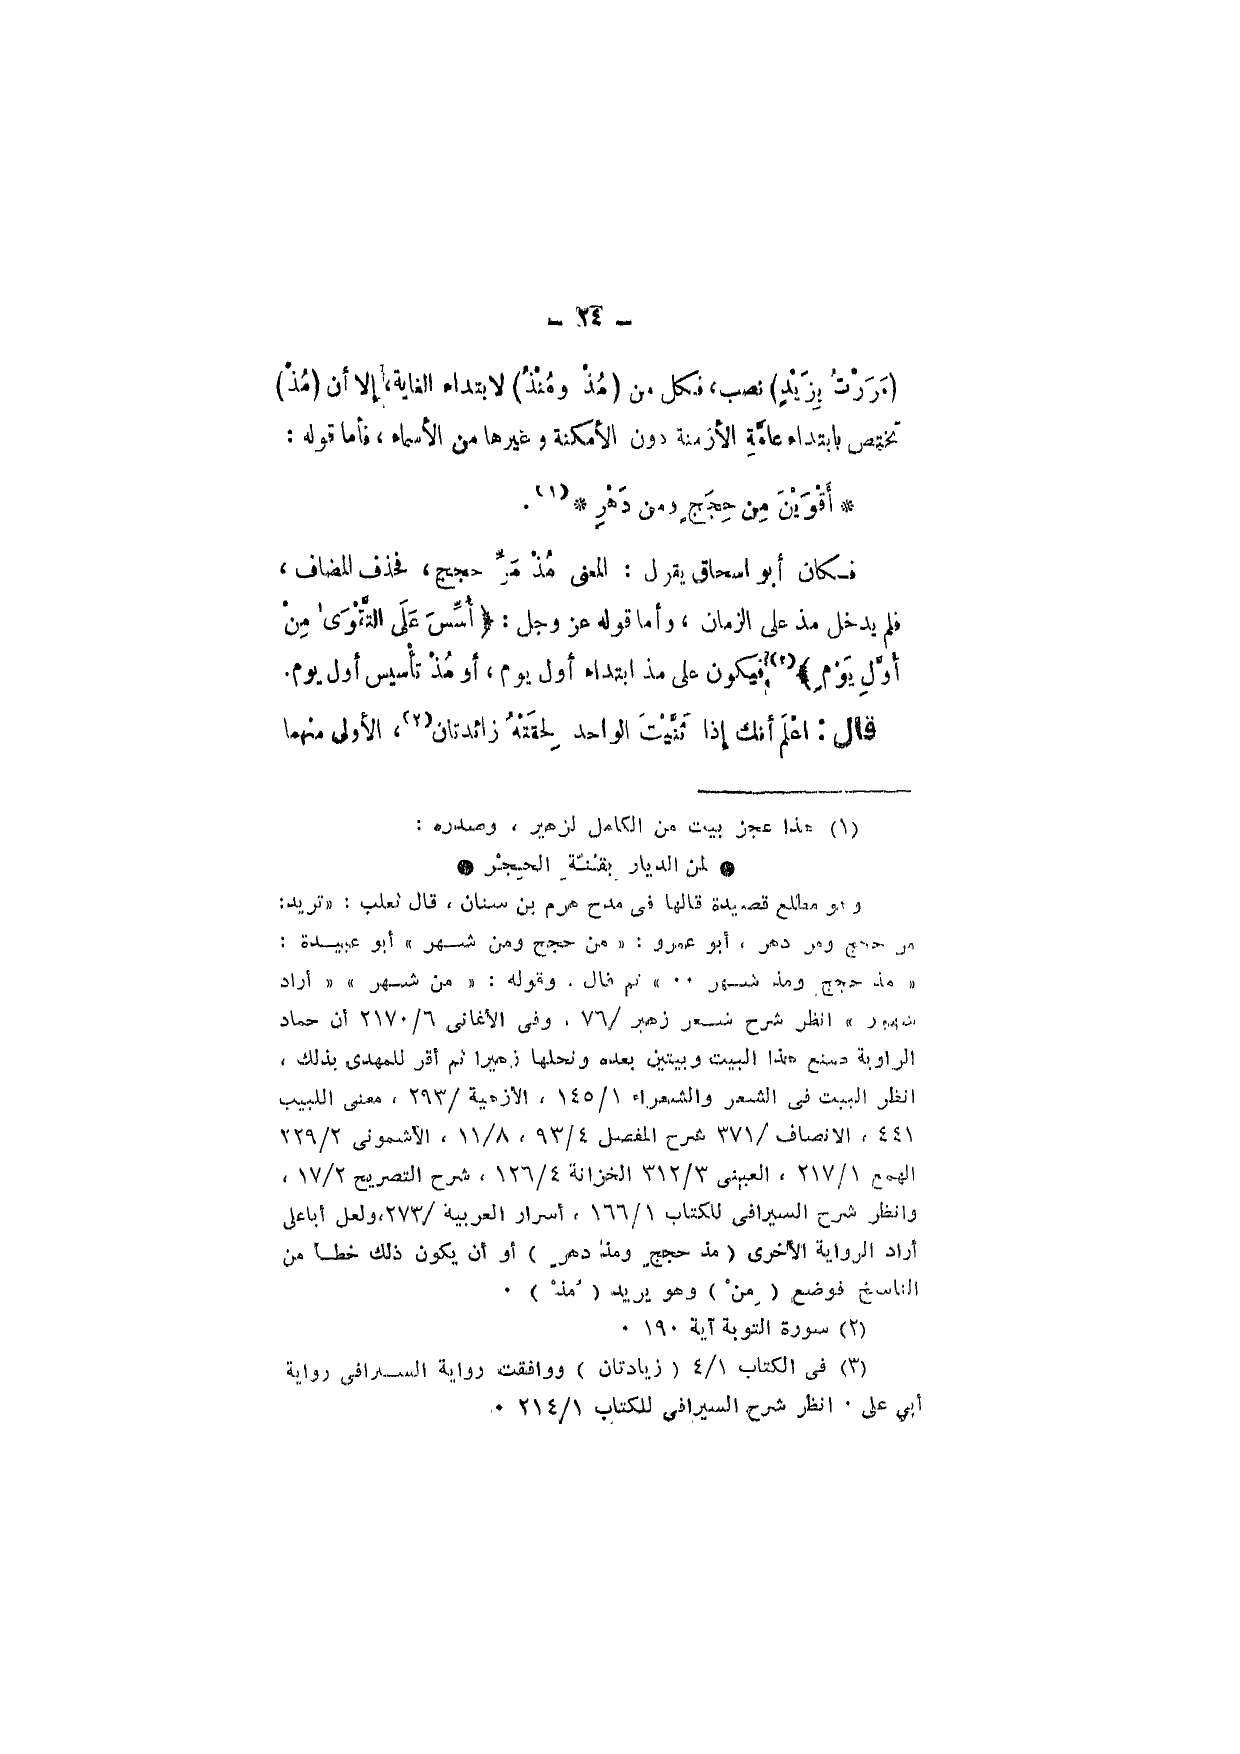 ـ ٢٤ ـ
(مَرَرْتُ بِزَيْدٍ) نصب، فكل من (مُذْ ومُنْذُ) لابتداء الغاية، إلا أن (مُذْ)
تختص بابتداء عامَّةِ الأزمنة دون الأمكنة وغيرها من الأسماء ، فأما قوله :
* أَقْوَيْنَ مِن حِجَجٍ ومن دَهْرِ *(١).
فكان أبو اسحاق يقول : المعنى مُذْ مَرِّ حجج ، فحذف المضاف ،
فلم يدخل مذ على الزمان ، وأما قوله عز وجل : ﴿ أُسِّسَ عَلَى التَّقْوَى مِنْ
أَوَّلِ يَوْمٍ ﴾(٢) فيكون على مذ ابتداء أول يوم ، أو مُذْ تأسيس أول يوم.
قال : اعْلَم أنك إذا ثَنَّيْتَ الواحد لحقَتْهُ زائدتان(٢)، الأولى منهما
(١) هذا عجز بيت من الكامل لزهير ، وصدره :
● لمن الديار بقنـَّة ِ الحِجْر ●
وهو مطلع قصيدة قالها فى مدح هرم بن سنان ، قال ثعلب : «تريد:
من حجج ومن دهر ، أبو عمرو : « من حجج ومن شهر » أبو عبيدة :
« مذ حجج ومذ شهر ٠٠ » ثم قال . وقوله : « من شهر » « أراد
شهور » انظر شرح شعر زهير /٧٦ ، وفى الأغانى ٢١٧٠/٦ أن حماد
الراوية صنع هذا البيت وبيتين بعده ونحلها زهيرا ثم أقر للمهدى بذلك ،
انظر البيت فى الشعر والشعراء ١٤٥/١ ، الأزهية /٢٩٣ ، معنى اللبيب
٤٤١ ، الانصاف /٣٧١ شرح المفصل ٩٣/٤ ، ١١/٨ ، الأشمونى ٢٢٩/٢
الهمع ٢١٧/١ ، العينى ٣١٢/٣ الخزانة ١٢٦/٤ ، شرح التصريح ١٧/٢ ،
وانظر شرح السيرافى للكتاب ١٦٦/١ ، أسرار العربية /٢٧٣،ولعل أباعلى
أراد الرواية الأخرى ( مذ حججٍ ومذ دهرٍ ) أو أن يكون ذلك خطأ من
الناسخ فوضع ( مِنْ ) وهو يريد ( مُذْ ) ٠
(٢) سورة التوبة آية ١٩٠ ٠
(٣) فى الكتاب ٤/١ ( زيادتان ) ووافقت رواية السيرافى رواية
أبي على ٠ انظر شرح السيرافى للكتاب ٢١٤/١ ٠